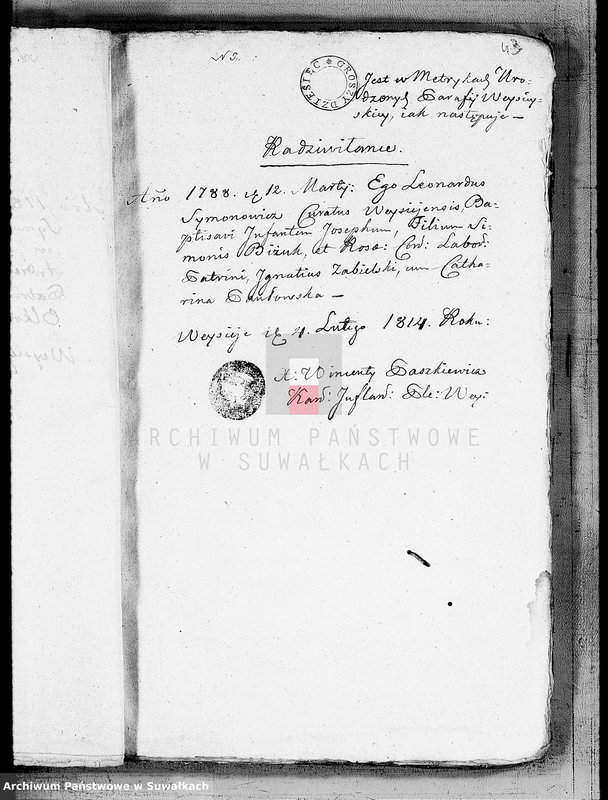 N 5.
43
DZIESIEC GROSZY
Jest w Metrykach Uro-
dzonych Parafij Weysiey-
skiey, iak następuje —
Radziwiłańce.
Año 1788. d. 12. Martij: Ego Leonardus
Symonowicz Curatus Weysiejensis, Ba-
ptisavi Infantem Josephum, Filium Si-
monis Bizuk, et Rosæ: Conj: Labor:
Patrini, Ignatius Zabielski, cum Catha-
rina Pawłowska —
Weysieje d. 4. Lutego 1814. Roku:
X: Wincenty Paszkiewicz
Kan: Juflan: Ple: Wey:
ARCHIWUM PAŃSTWOWE
W SUWAŁKACH
Archiwum Państwowe w Suwałkach